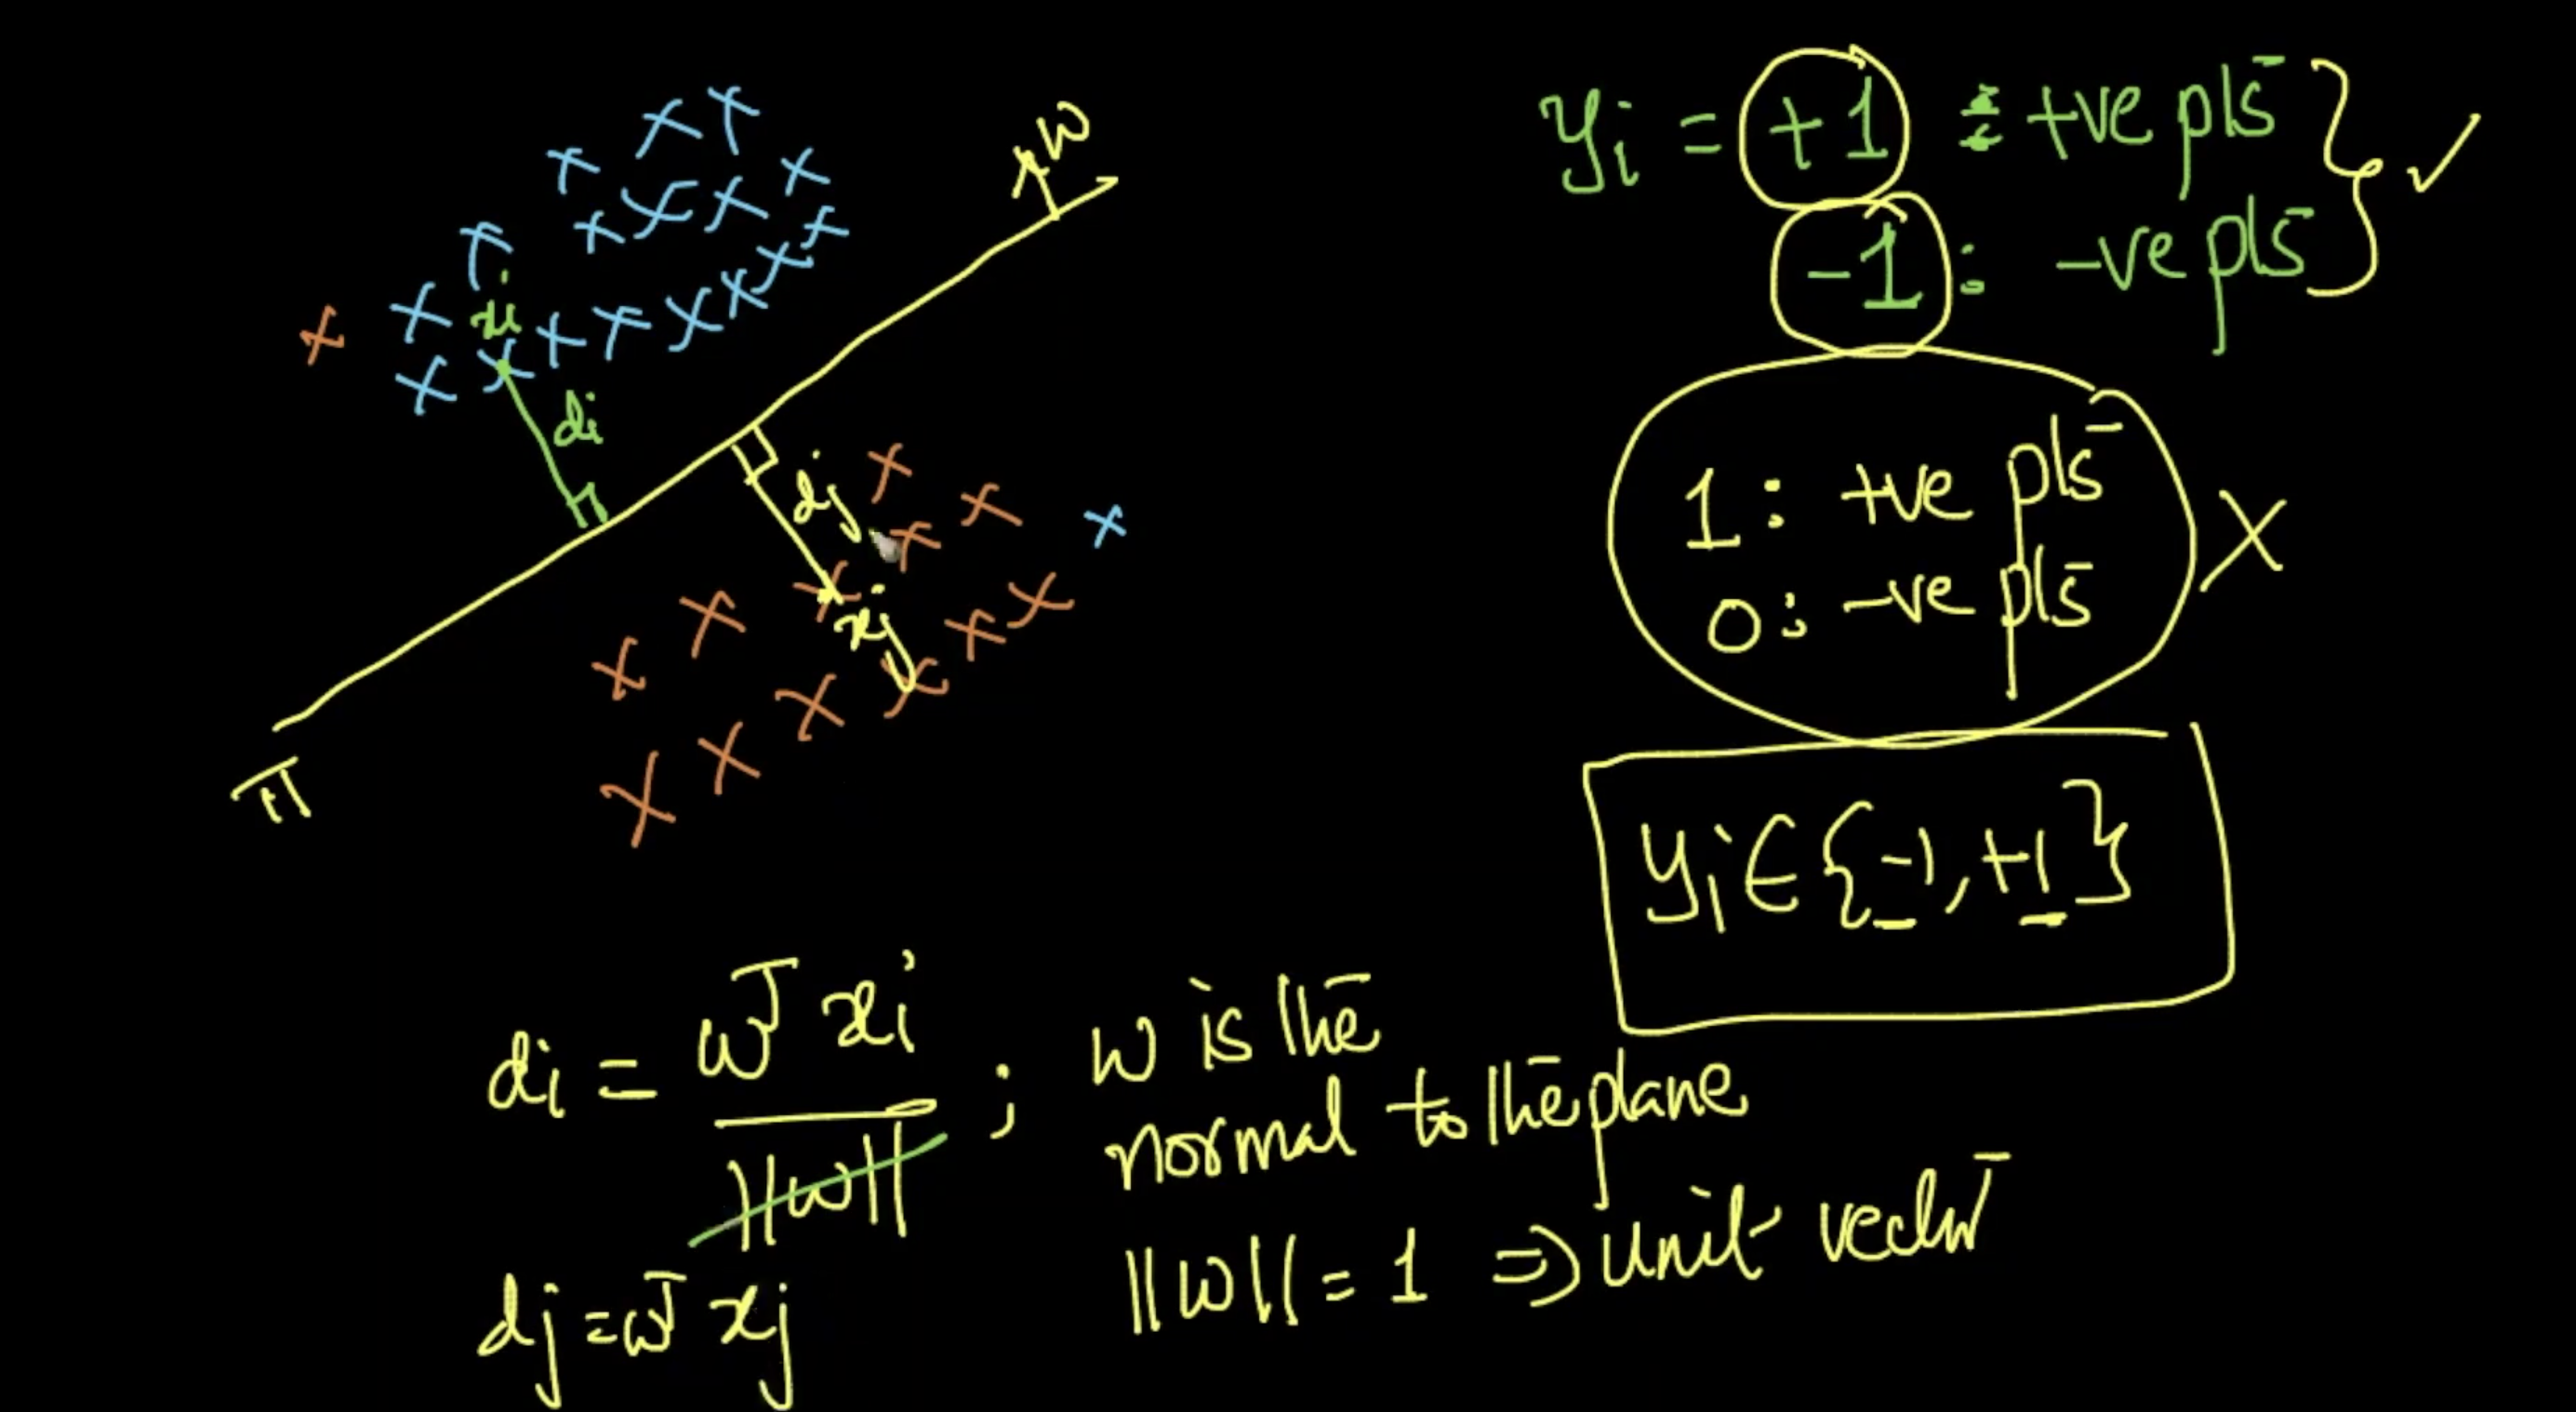 w
xi
di
π
dj
xj
yi = +1 : +ve pts
-1 : -ve pts
1 : +ve pts
0 : -ve pts
yi ∈ {-1, +1}
di = wᵀxi / ||w|| ; w is the
normal to the plane
||w|| = 1 ⇒ unit vector
dj = wᵀxj